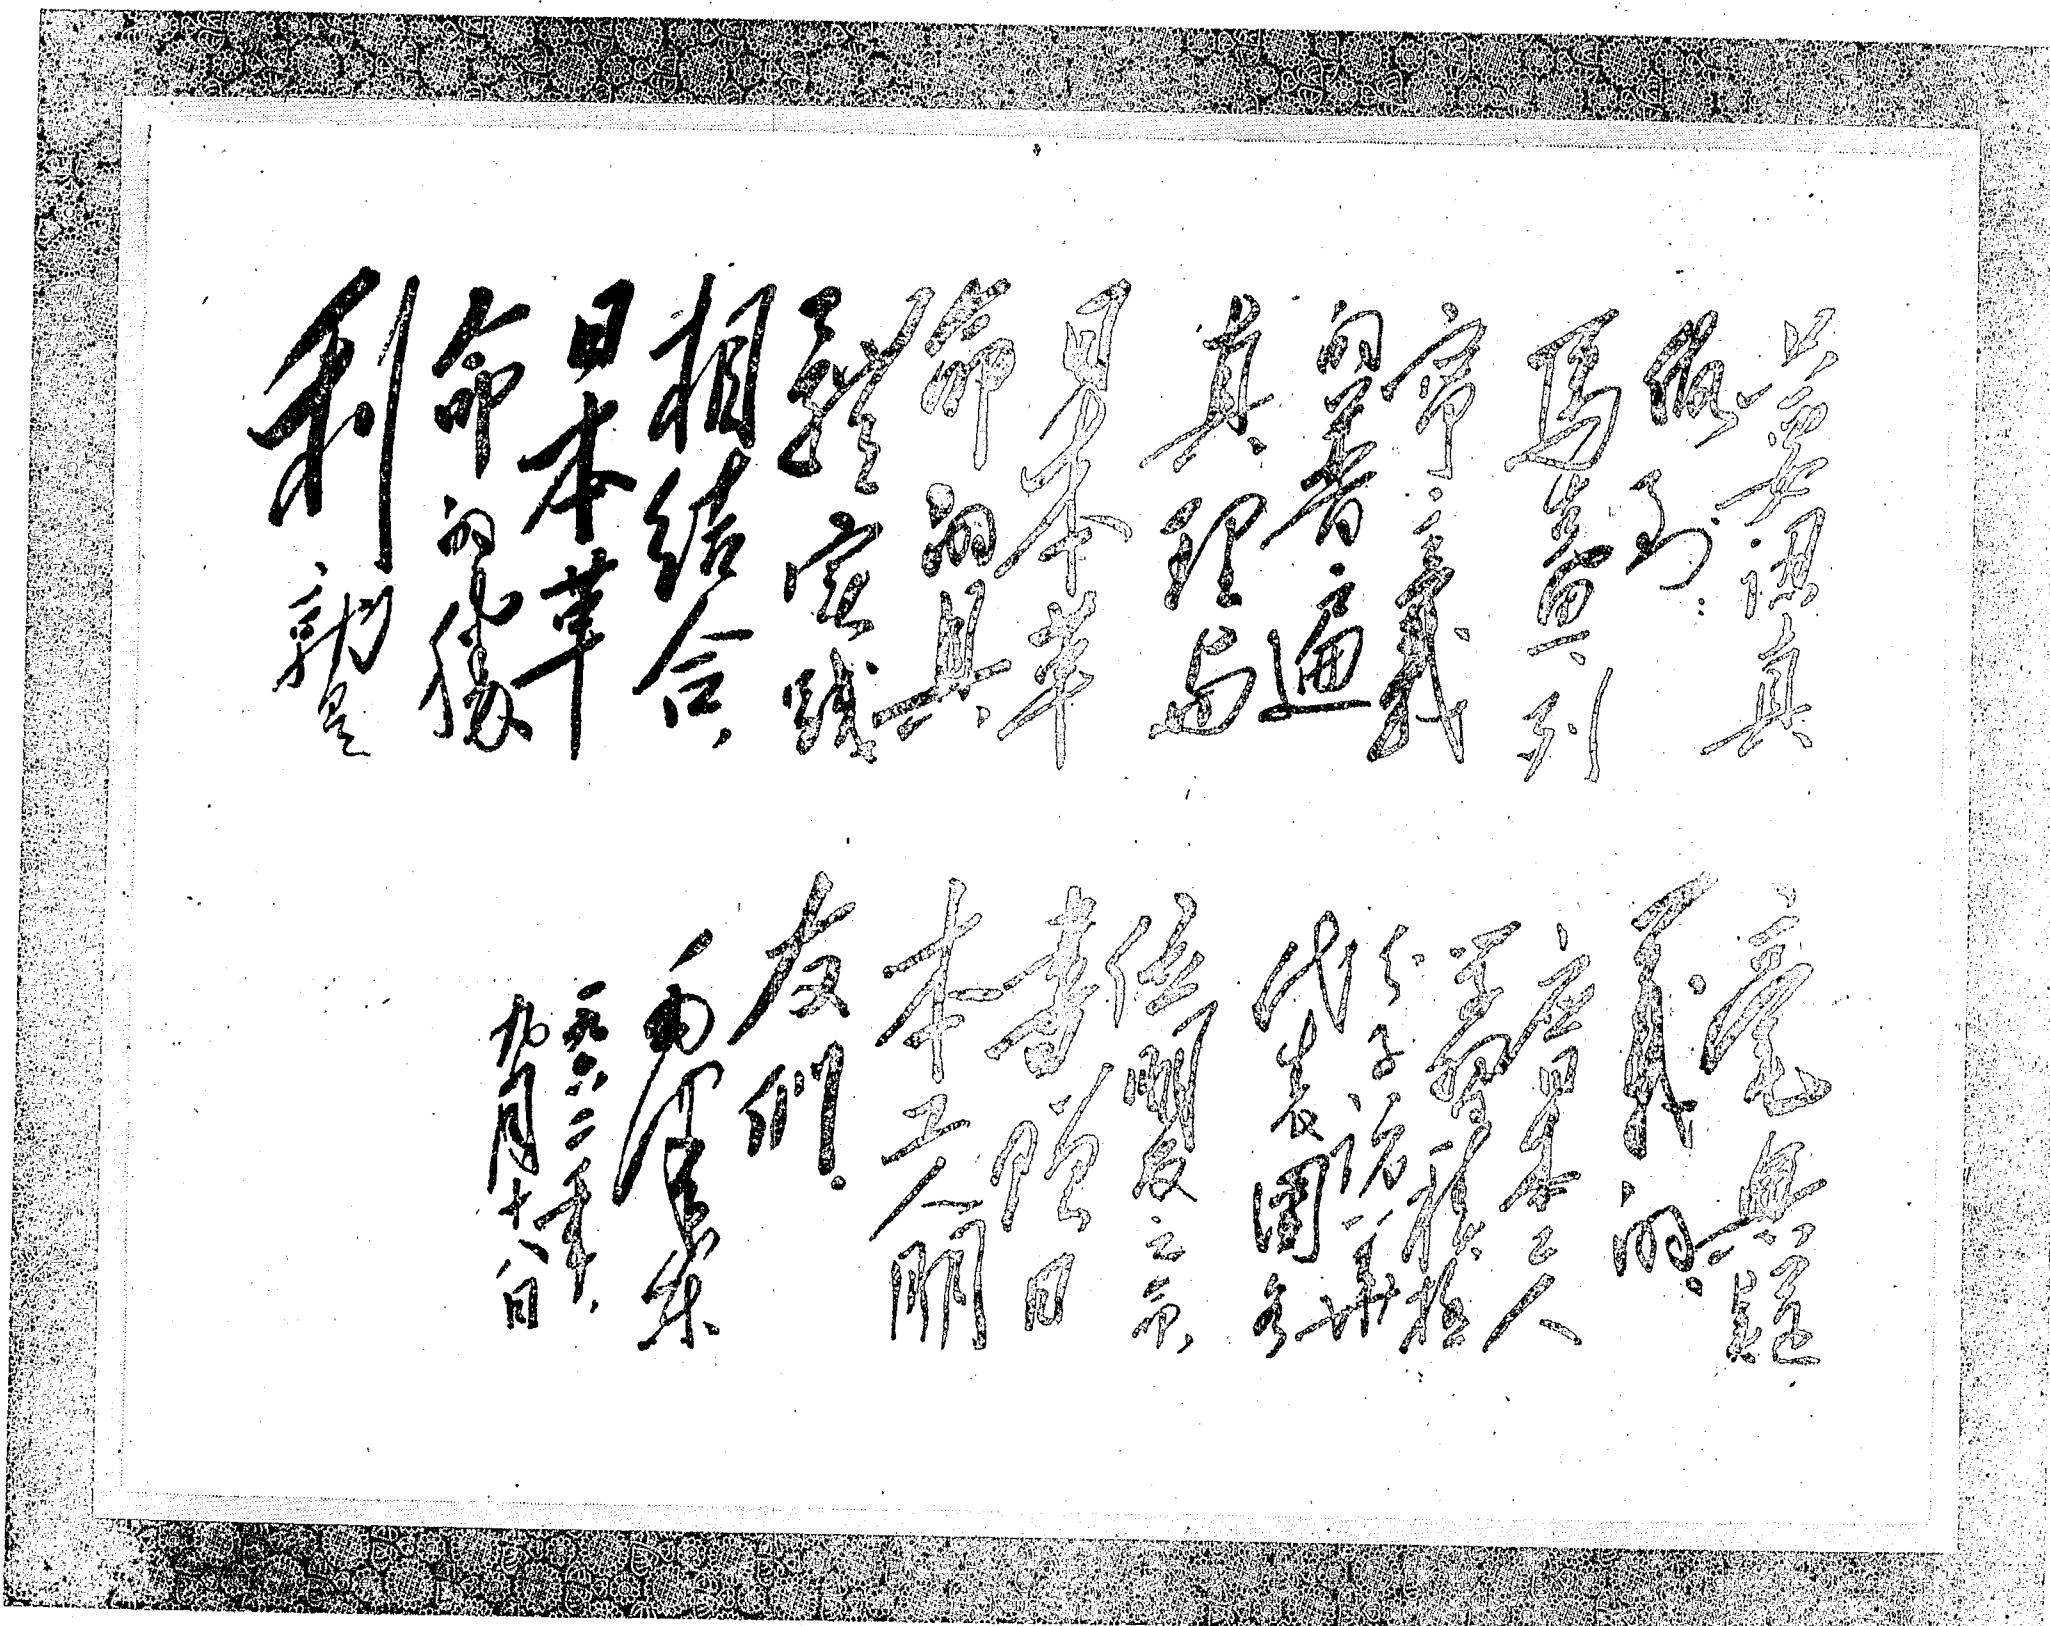 只要認真
做到
馬克思列
寧主義
的普遍
真理与
日本革
命的具
體实践
相結合，
日本革
命的勝
利就是
毫無疑
義的。
应日本工人
學習積極
分子訪華
代表團各
位朋友之命，
書贈日
本工人朋
友們。
毛澤東
一九六二年
九月十八日